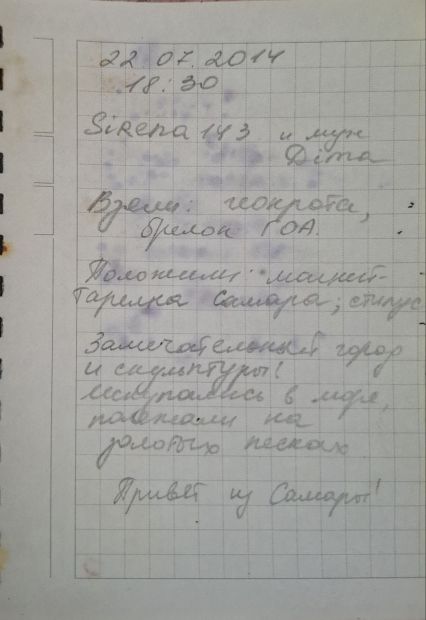 22.07.2014
18:30
Sirena 143 и муж
Dima
Взяли: геокрота,
брелок ГОА.
Положили: магнит-
тарелка Самара; стилус
Замечательный город
и скульптуры!
Искупались в море,
полежали на
золотых песках
Привет из Самары!